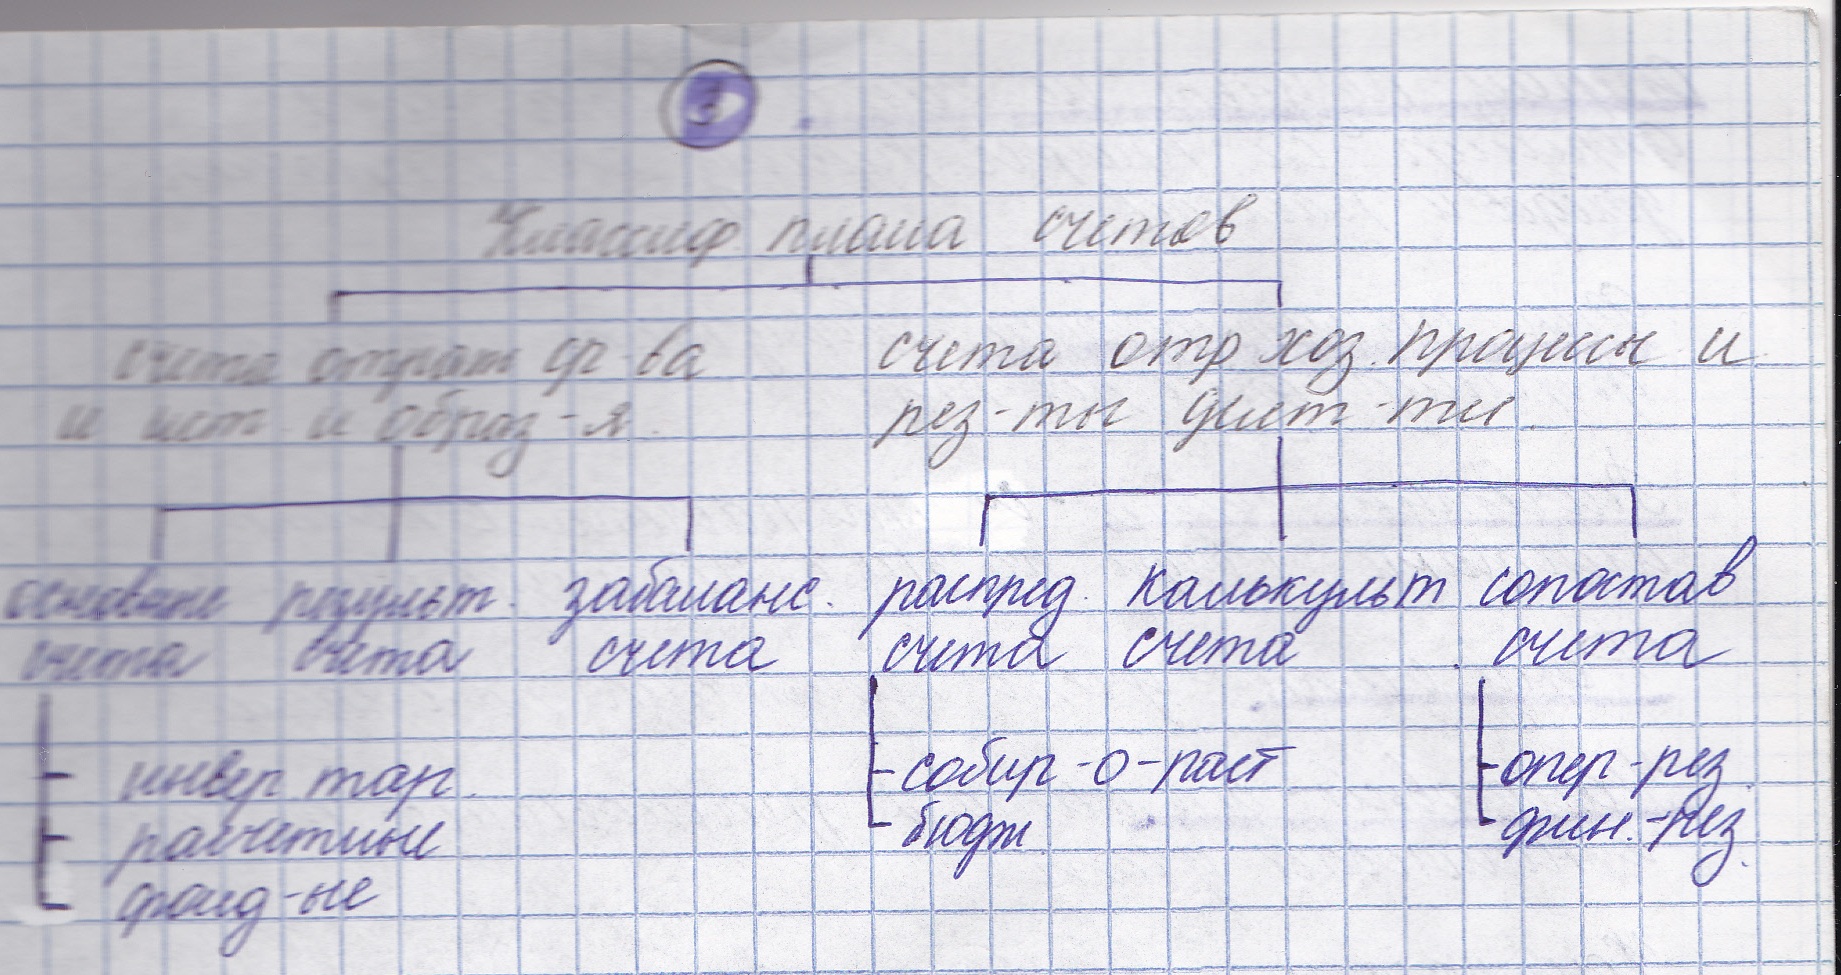 Классиф плана счетов
счета отраж ср-ва
и ист. и образ-я.
счета отр хоз. процессы и
рез-ты деят-ти.
основные счета
регульт. счета
забаланс. счета
распред. счета
калькульт счета
сопостав счета
инвертар.
расчетные
фонд-ые
собир-о-раст
бюдж.
опер-рез
фин.-рез.